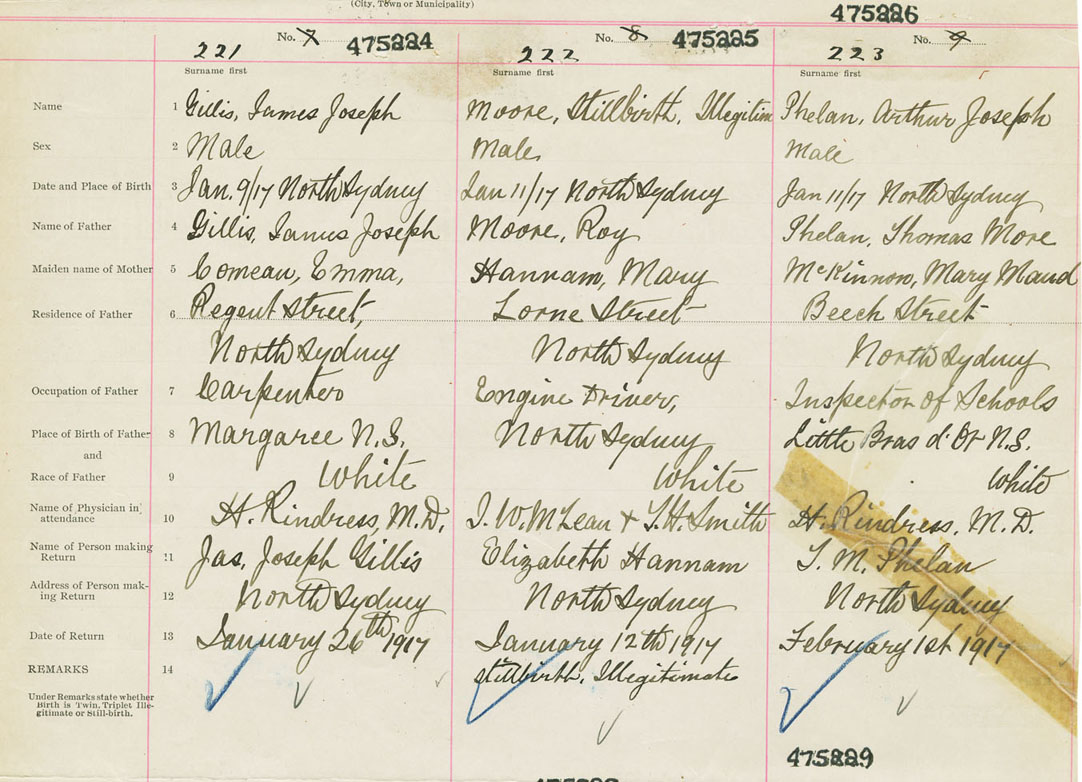 (City, Town or Municipality)
475226
No. 7 475224
No. 8 475225
No. 9
221
222
223
Surname first
Surname first
Surname first
Name 1 Gillis, James Joseph Moore, Stillbirth, Illegitim Phelan, Arthur Joseph
Sex 2 Male Male, Male
Date and Place of Birth 3 Jan. 9/17 North Sydney Jan 11/17 North Sydney Jan 11/17 North Sydney
Name of Father 4 Gillis, James Joseph Moore, Roy Phelan, Thomas More
Maiden name of Mother 5 Comeau, Emma, Hannam, Mary McKinnon, Mary Maud
Residence of Father 6 Regent Street, Lorne Street Beech Street
North Sydney North Sydney North Sydney
Occupation of Father 7 Carpenter Engine Driver, Inspector of Schools
Place of Birth of Father 8 Margaree N.S. North Sydney Little Bras d'Or N.S.
and
Race of Father 9 White White White
Name of Physician in attendance 10 H. Rindress, M.D. J. W. McLean + T.H. Smith H. Rindress, M.D.
Name of Person making Return 11 Jas, Joseph Gillis Elizabeth Hannam T. M. Phelan
Address of Person mak-
ing Return 12 North Sydney North Sydney North Sydney
Date of Return 13 January 26th 1917 January 12th 1917 February 1st 1917
REMARKS 14 Stillbirth, Illegitimate
Under Remarks state whether
Birth is Twin, Triplet Ille-
gitimate or Still-birth.
475229